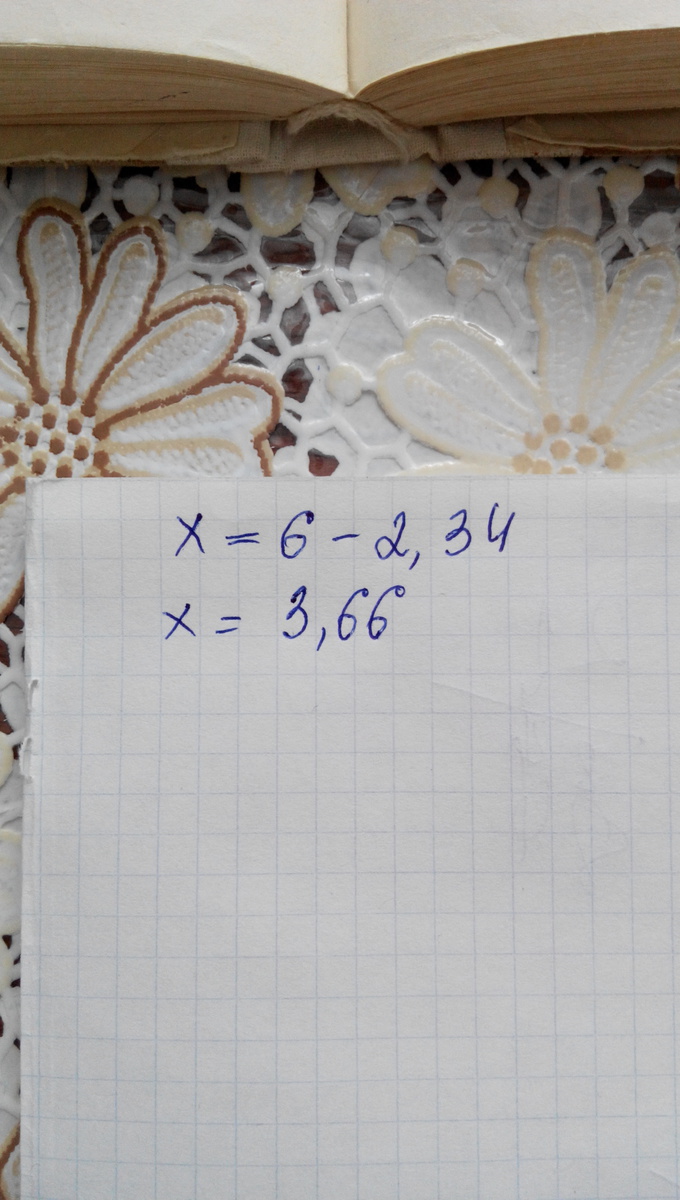 x = 6 - 2,34
x = 3,66